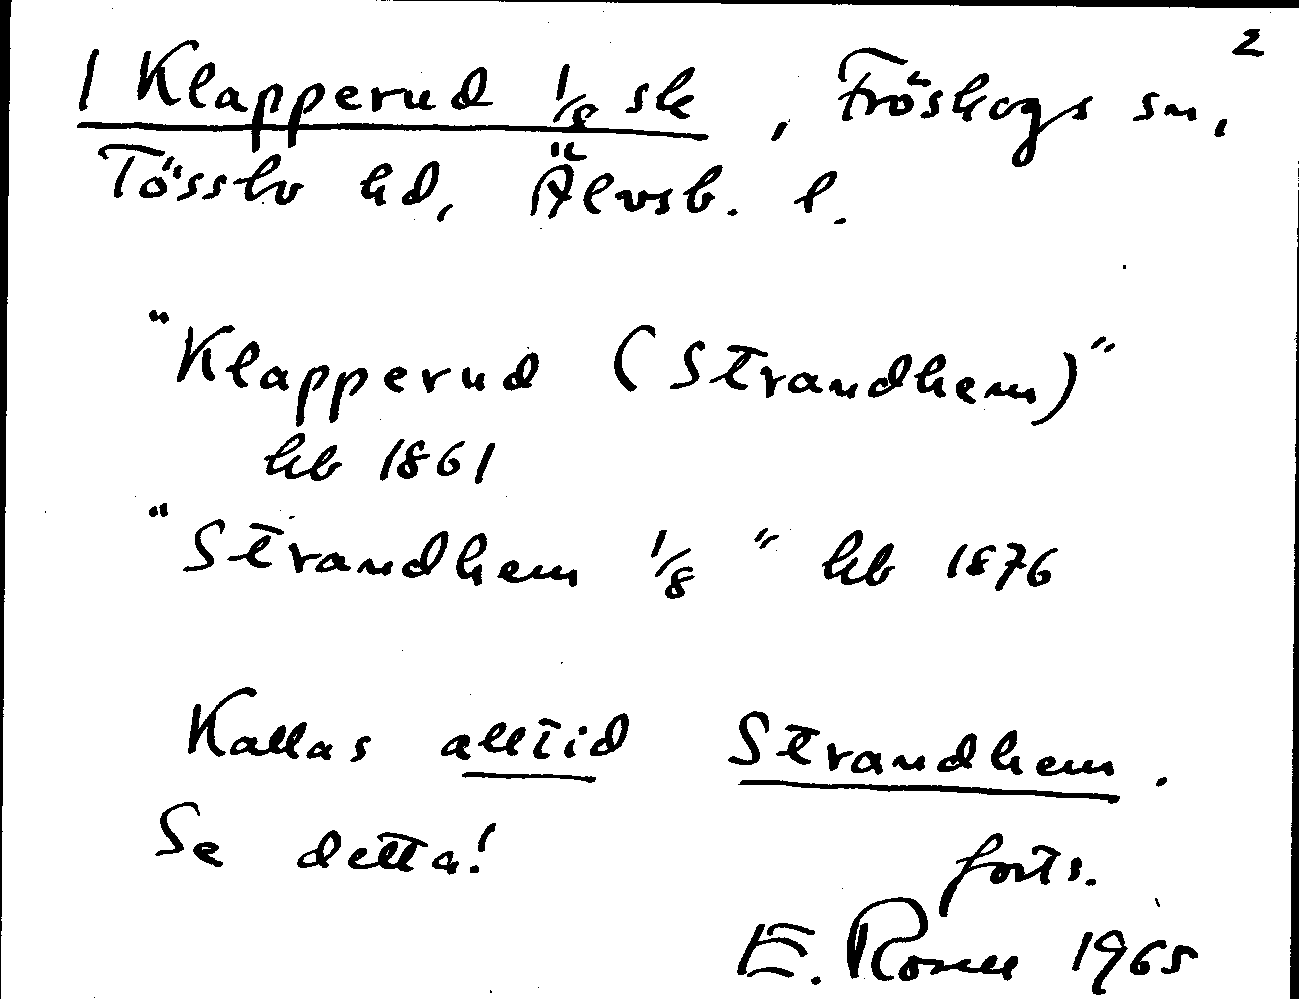 2
1 Klapperud 1/8 sk, Fröskogs sn,
Tössbo hd, Älvsb. l.
"Klapperud (Strandhem)"
hb 1861
"Strandhem 1/8" hb 1876
Kallas alltid Strandhem.
Se detta!
forts.
E. 1965